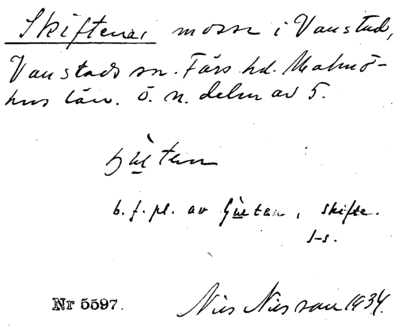 Skiftena, mosse i Vanstad,
Vanstads sn. Färs hd. Malmö-
hus län. ö. n. delen av 5.
b. f. pl. av skifte.
Nr 5597. Nils Nilsson 1934.